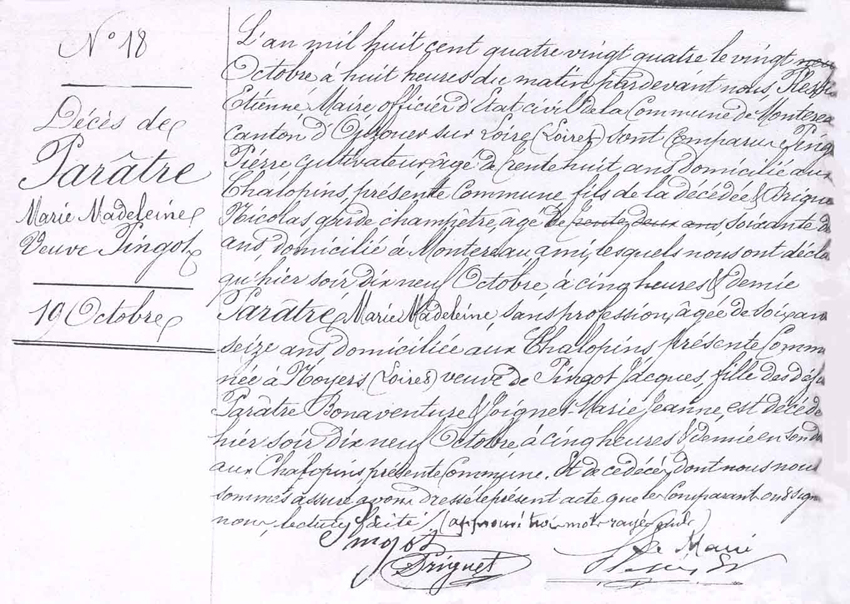 N° 18
Décès de
Parâtre
Marie Madeleine
Veuve Pingot
19 Octobre
L'an mil huit cent quatre vingt quatre le vingt
Octobre à huit heures du matin pardevant nous
Etienne Maire officier d'Etat civil de la Commune de Monterea
canton d'Ouzouer sur Loire (Loiret) sont comparu Ping
Pierre cultivateur âgé de trente huit ans domicilié aux
Chalopins, présente Commune fils de la décédée & Prigue
Nicolas garde champêtre, âgé de trente deux ans soixante d
ans, domicilié à Montereau ami, lesquels nous ont décla
qu'hier soir dix neuf Octobre à cinq heures & demie
Parâtre Marie Madeleine, sans profession, âgée de soixan
seize ans domiciliée aux Chalopins présente Comm
née à Noyers (Loiret) veuve de Pingot Jacques, fille des défu
Parâtre Bonaventure & Joignet Marie Jeanne, est décédé
hier soir dix neuf Octobre à cinq heures & demie en
aux Chalopins, présente Commune. Et de ce décès, dont nous nous
sommes assuré avons dressé le présent acte que les Comparant ont sign
nous, lecture faite (approuvé trois mots rayés nuls)
Pingot
Priguet
Le Maire